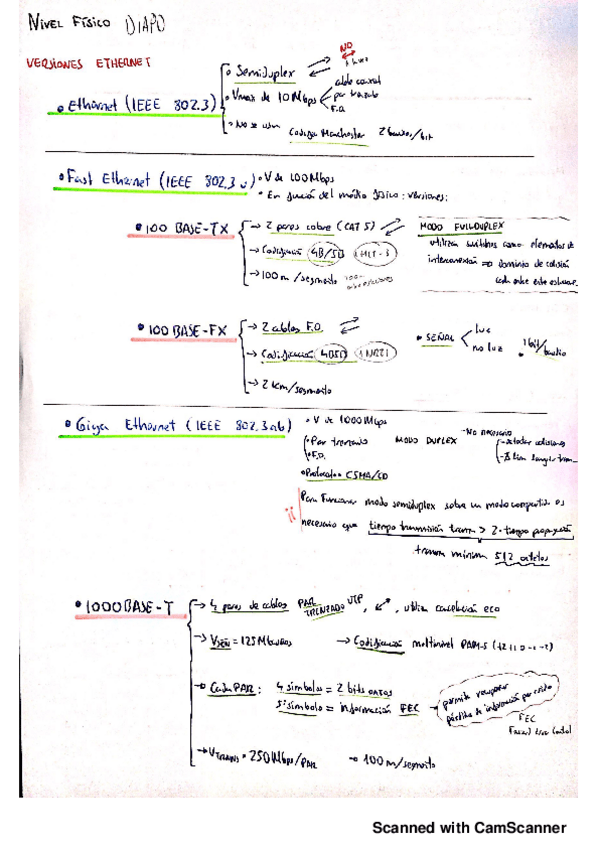 NIVEL FÍSICO DIAPO
VERSIONES ETHERNET
• Ethernet (IEEE 802.3)
• Semiduplex
NO
• Vmax de 10 Mbps
cable coaxial
par trenzado
F.O.
• No se usa Codigo Manchester 2 baudios/bit
• Fast Ethernet (IEEE 802.3 u)
• V de 100 Mbps
• En función del medio físico: versiones:
• 100 BASE-TX
→ 2 pares cobre (CAT 5)
→ Codificación 4B/5B MLT-3
→ 100 m/segmento
MODO FULLDUPLEX
utilizan switches como elementos de
interconexión => dominio de colisión
• 100 BASE-FX
→ 2 cables F.O.
→ Codificación 4B5B NRZI
→ 2 km/segmento
• SEÑAL
luz
no luz
1 bit/baudio
• Giga Ethernet (IEEE 802.3ab)
• V de 1000 Mbps
• Par trenzado
• F.O.
MODO DUPLEX
- No necesario
- detectar colisiones
• Protocolo CSMA/CD
¡¡ Para funcionar modo semiduplex sobre un modo compartido es
necesario que tiempo transmisión trama > 2·tiempo propagación
trama mínima 512 octetos
• 1000 BASE-T
→ 4 pares de cables PAR TRENZADO UTP, utiliza cancelación eco
→ = 125 Mbaudios → Codificación multinivel PAM-5 (+2 +1 0 -1 -2)
→ Cada PAR: 4 simbolos = 2 bits datos
5º simbolo = información FEC
permite recuperar
pérdida de información por
FEC
→ VTRANS = 250 Mbps/PAR → 100 m/segmento
Scanned with CamScanner